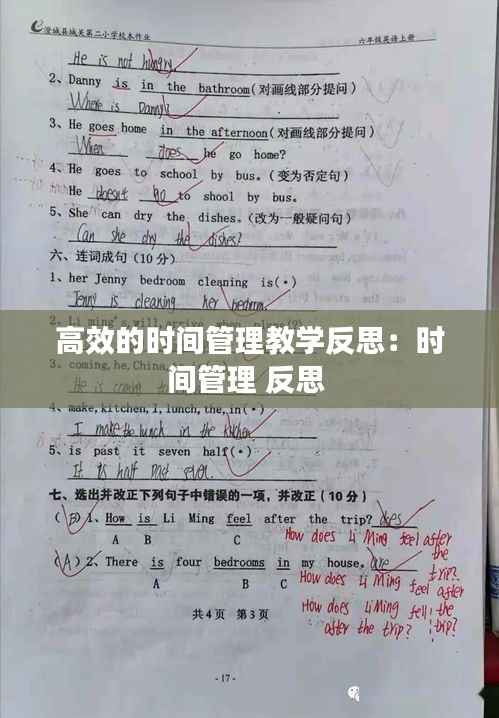 澄城县城关第二小学校本作业 六年级英语上册
He is not hungry
2、Danny is in the bathroom(对画线部分提问)
Where is Danny?
3、He goes home in the afternoon(对画线部分提问)
When does he go home?
4、He goes to school by bus.(变为否定句)
He doesn't go to shool by bus.
5、She can dry the dishes.(改为一般疑问句)
Can she dry the dishes?
六、连词成句(10分)
1、her Jenny bedroom cleaning is(•)
Jenny is cleaning her bedroom.
高效的时间管理教学反思：时
间管理 反思
3、coming,he,China,
4、make,kitchen,I,lunch,the,in(•)
I make the lunch in the kitchen
5、is past it seven half(•)
It is half past seven.
七、选出并改正下列句子中错误的一项,并改正(10分)
(B)1、How is Li Ming feel after the trip? does
A B C
How does Li Ming feel after
the
trip?
(A)2、There is four bedrooms in my house. are
A B C
How does Li Ming feel after
How does Li Ming fell the
after the trip? trip?
共4页 第3页
- 17 -